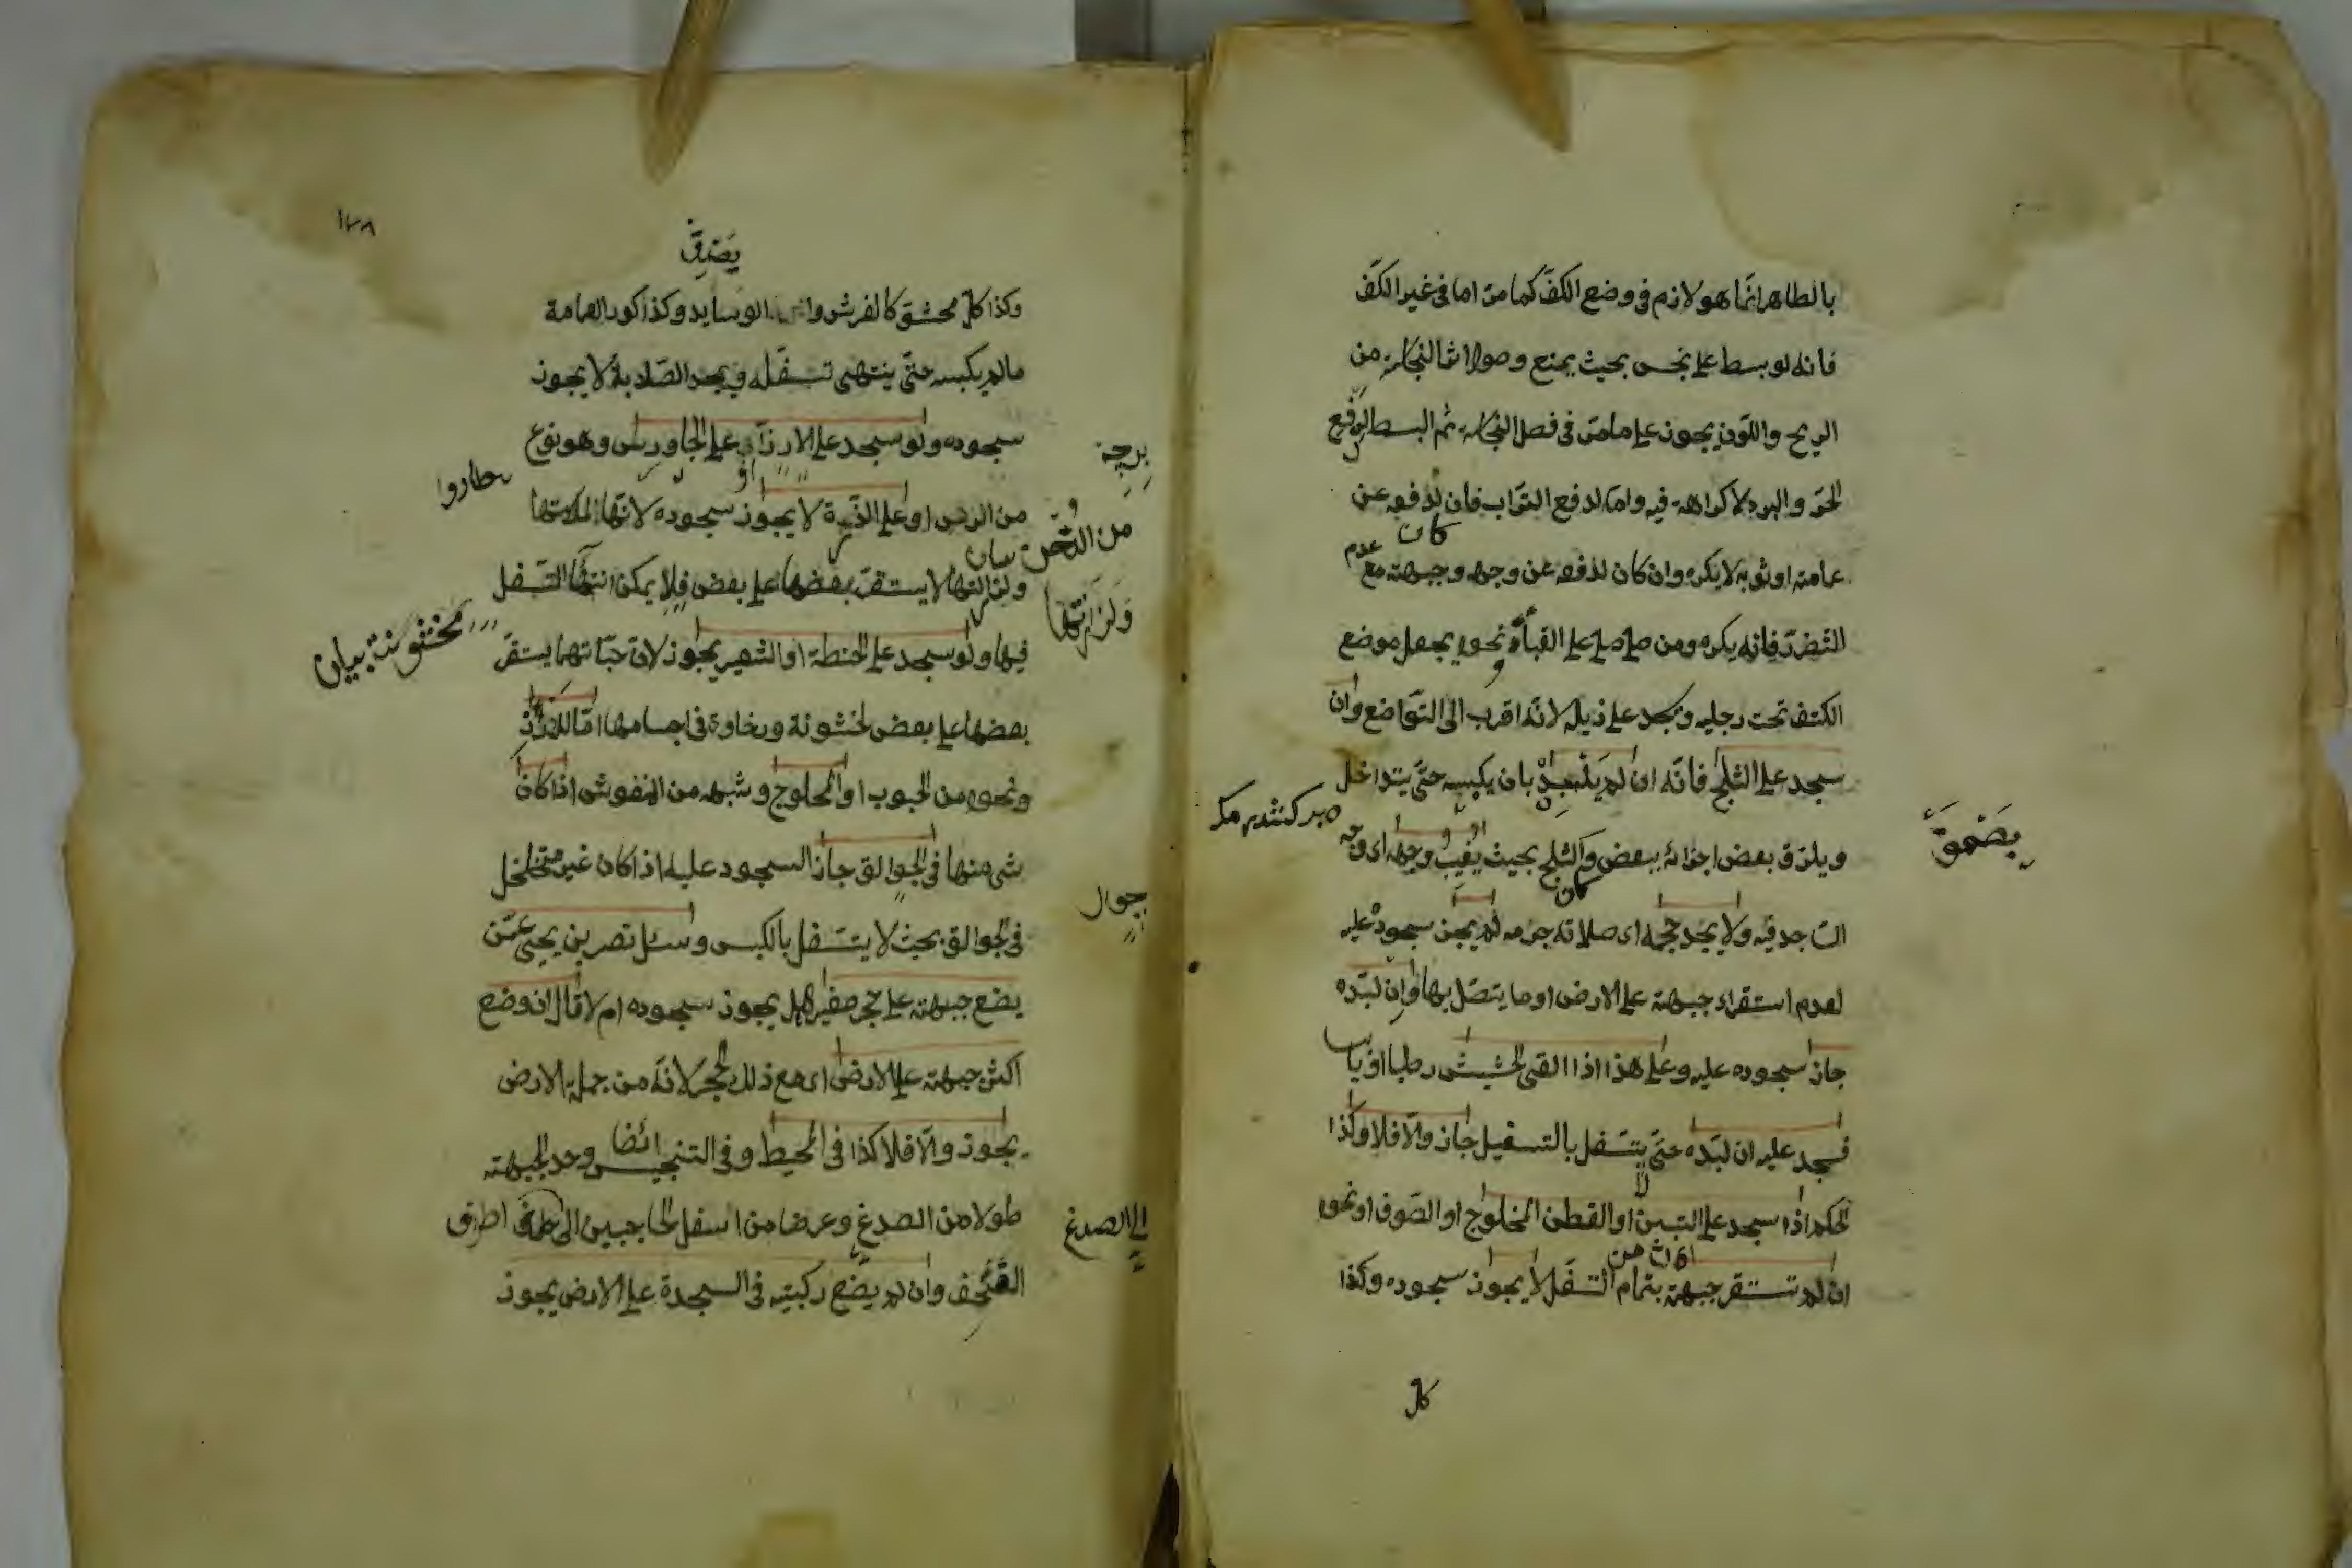 بالطاهر انما هو لازم فى وضع الكفّ كما مرّ اما فى غير الكفّ
فانه لو بسط على نجس بحيث يمنع وصول اثر النجاسة من
الريح واللون يجوز على ما مرّ فى فصل النجاسة ثم البسط لدفع
الحرّ والبرد لا كراهة فيه واما لدفع التراب فان كان لدفعه عن
عمامته او ثوبه لا يكره وان كان لدفعه عن وجهه وجبهته مع عدم
التضرّر فانه يكره ومن صلى على القباء ونحوه يجعل موضع
الكتف تحت رجليه ويسجد على ذيله لانه اقرب الى التواضع وان
سجد على الثلج فانّه ان لم يلبده بان يكبسه حتّى يتداخل
ويلزق بعض اجزائه ببعض وكان الثلج بحيث يغيب وجهه اى وجه
الساجد فيه ولا يجد حجمه اى صلابة جرمه لم يجز سجوده عليه
لعدم استقرار جبهته على الارض او ما يتصل بها وان لبّده
جاز سجوده عليه وعلى هذا اذا القى الحشيش رطبا او يابسا
فسجد عليه ان لبّده حتّى يتسفل بالتسفيل جاز والّا فلا وكذا
الحكم اذا سجد على التبن او القطن المحلوج او الصوف او نحوه
ان لم تستقر جبهته بتمام التسفل لا يجوز سجوده وكذا
كل
١٧٨
وكذا كل محشو كالفرش والوسايد وكذا كور العمامة
مالم يكبسه حتّى ينتهى تسفّله ويجد الصّلابة لا يجوز
سجوده ولو سجد على الارز او على الجاورس وهو نوع
من الدخن او على الذرة لا يجوز سجوده لانها لملاستها
ولزازتها لا يستقرّ بعضها على بعض فلا يمكن انتهاء التسفل
فيها ولو سجد على الحنطة او الشعير يجوز لان حبّاتهما يستقرّ
بعضها على بعض لخشونة ورخاوة فى اجسامها امّا الارز
ونحوه من الحبوب او المحلوج وشبهه من المنفوش اذا كان
شئ منها فى الجوالق جاز السجود عليه اذا كان غير متخلخل
فى الجوالق بحيث لا يتسفل بالكبس وسئل نصر بن يحيى عمّن
يضع جبهته على حجر صغير هل يجوز سجوده ام لا قال ان وضع
اكثر جبهته على الارض اى مع ذلك الحجر لانه من جملة الارض
يجوز والّا فلا كذا فى المحيط وفى التنجيس ايضا وحد الجبهة
طولا من الصدغ وعرضا من اسفل الحاجبين الى طرف
القحف وان لم يضع ركبتيه فى السجدة على الارض يجوز
من الدخن
ولزازتها
جوال
الى الصدغ